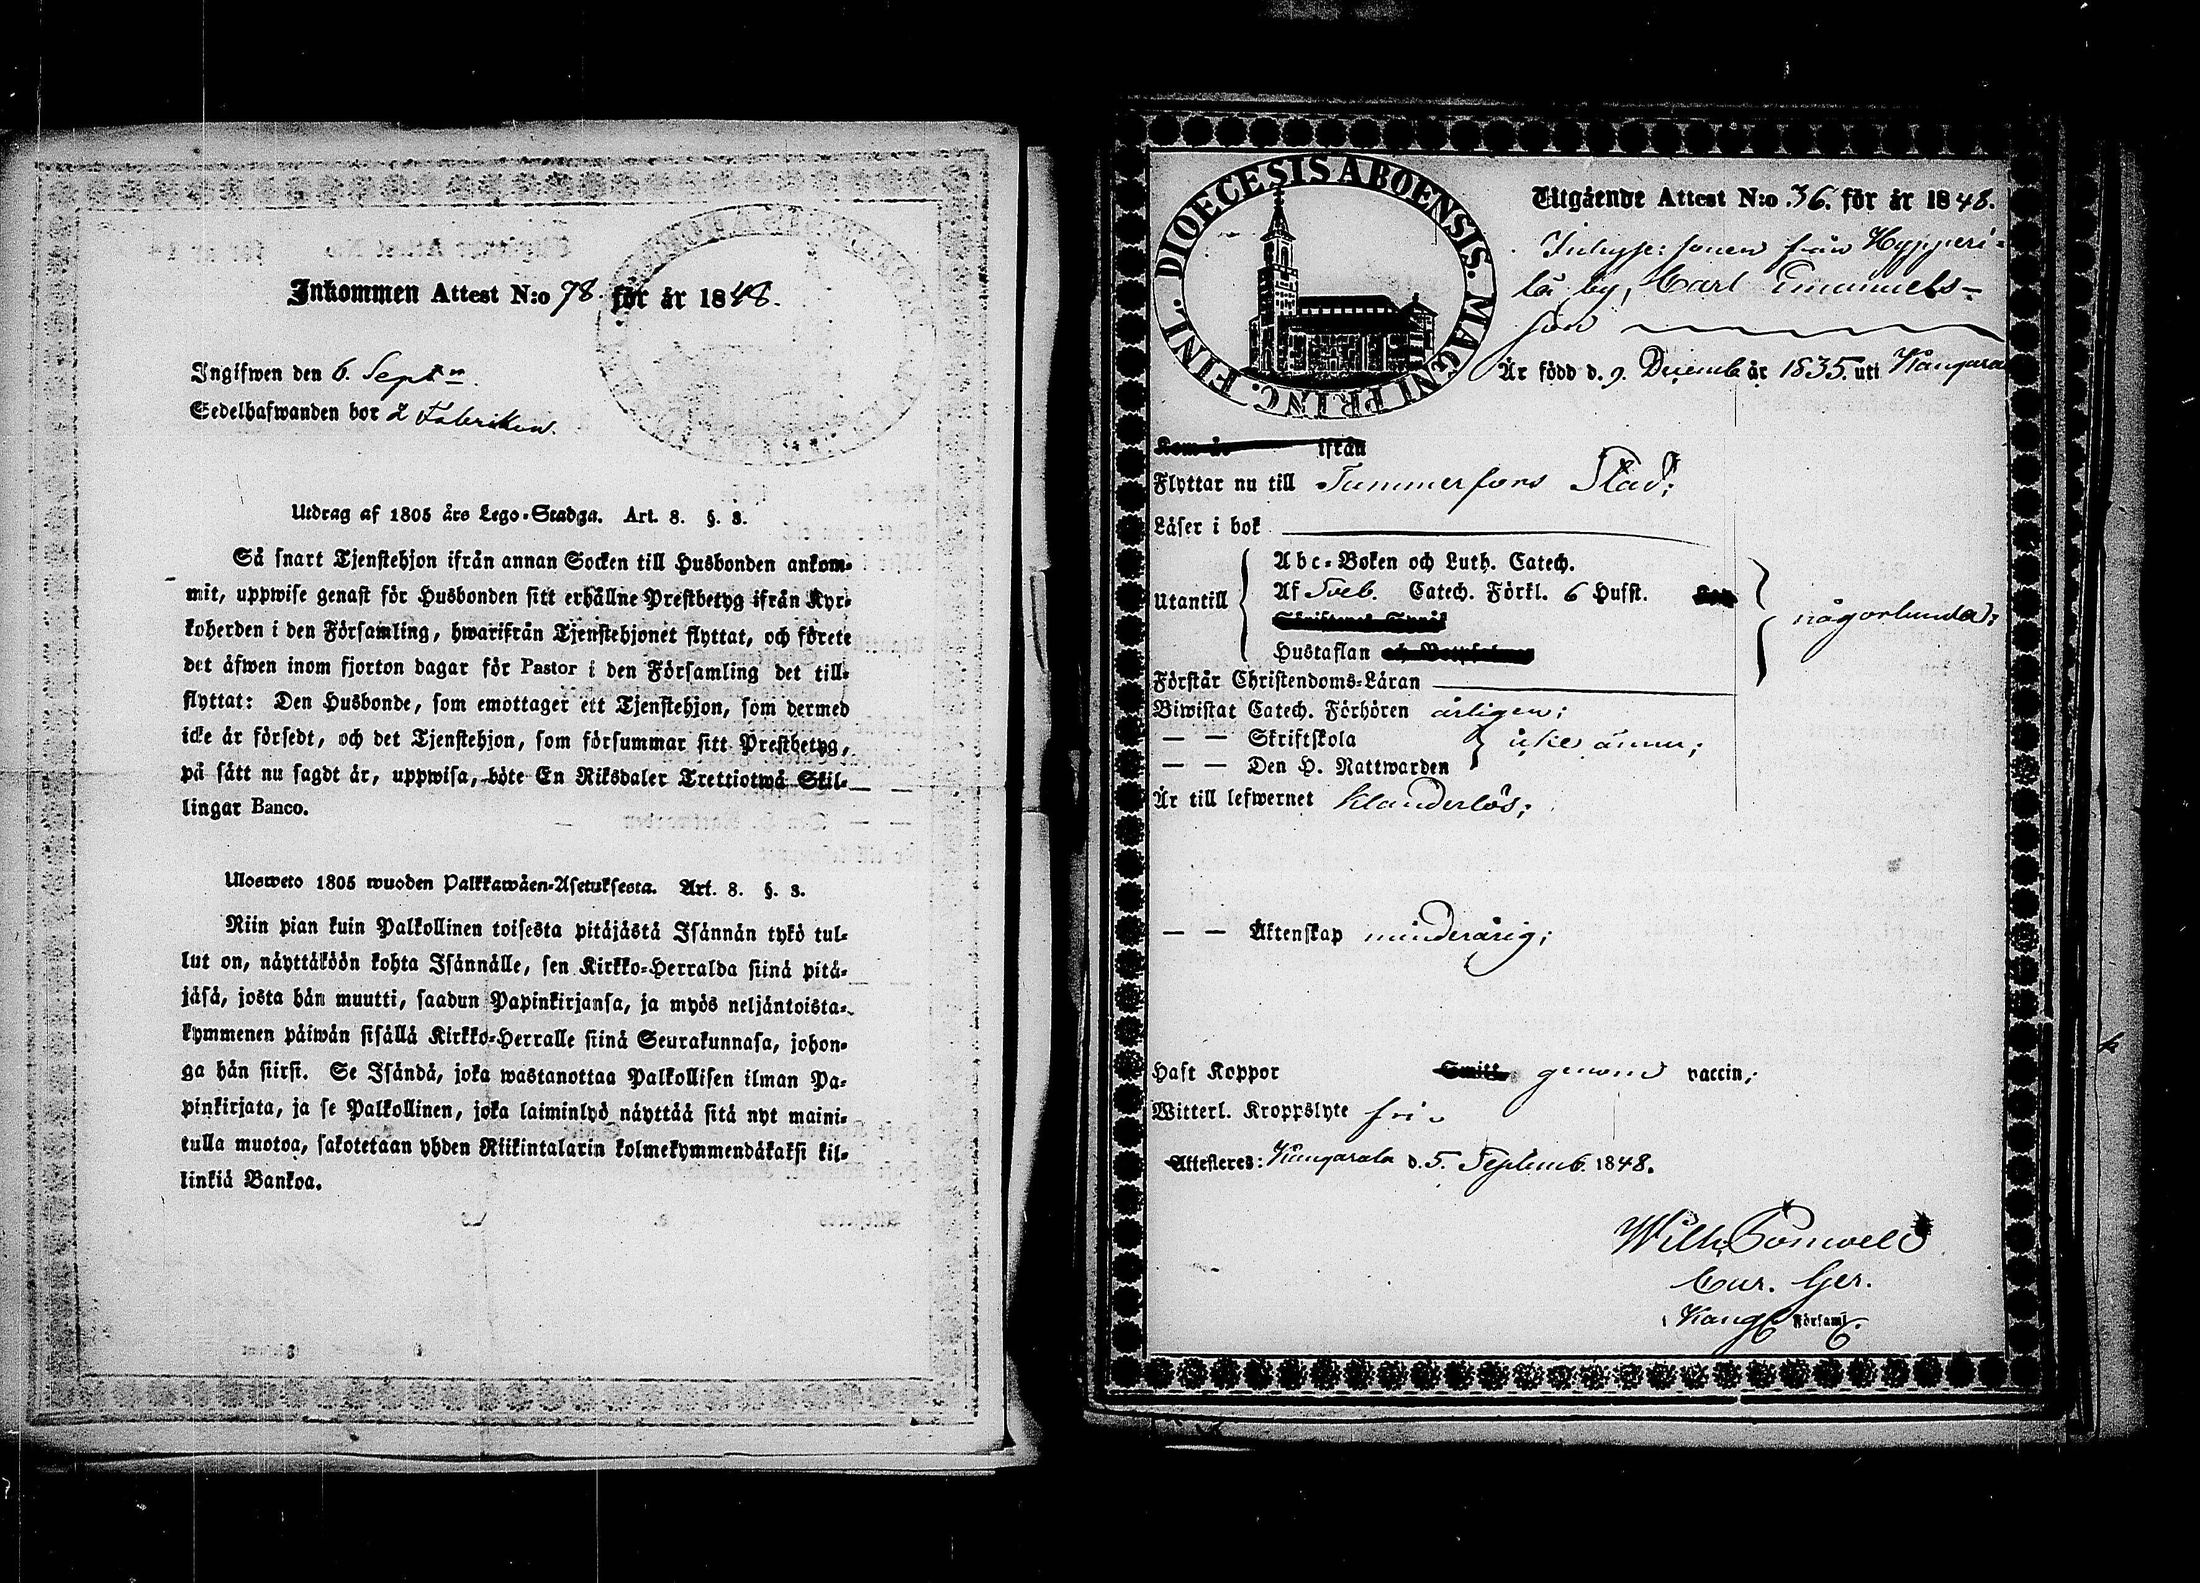 Inkommen Attest N:o 78. för år 1848.
Ingifwen den 6. Septr
Sedelhafwanden bor z Fabriken.
Utdrag af 1805 års Lego-Stadga. Art. 8. §. 3.
Så snart Tjenstehjon ifrån annan Socken till Husbonden ankom-
mit, uppwise genast för Husbonden sitt erhållne Prestbetyg ifrån Kyr-
koherden i den Församling, hwarifrån Tjenstehjonet flyttat, och förete
det äfwen inom fjorton dagar för Pastor i den Församling det till-
flyttat: Den Husbonde, som emottager ett Tjenstehjon, som dermed
icke är försedt, och det Tjenstehjon, som försummar sitt Prestbetyg,
på sätt nu sagdt är, uppwisa, böte En Riksdaler Trettiotwå Skil-
lingar Banco.
Ulosweto 1805 wuoden Palkkawäen-Asetuksesta. Art. 8. §. 3.
Niin pian kuin Palkollinen toisesta pitäjästä Isännän tykö tul-
lut on, näyttäköön kohta Isännälle, sen Kirkko-Herralda siinä pitä-
jäsä, josta hän muutti, saadun Papinkirjansa, ja myös neljäntoista-
kymmenen päiwän sisällä Kirkko-Herralle siinä Seurakunnasa, johon-
ga hän siirsi. Se Isändä, joka wastanottaa Palkollisen ilman Pa-
pinkirjata, ja se Palkollinen, joka laiminlyö näyttää sitä nyt maini-
tulla muotoa, sakotetaan yhden Riikintalarin kolmekymmendäkaksi kil-
linkiä Bankoa.
DIOECESIS ABOENSIS. MAGNI PRINC. FINL.
Utgående Attest N:o 36. för år 1848.
Inhyse: sonen från Hypperi-
lä by, Carl Emanuels-
son
Är född d. 9. Decemb. år 1835. uti Kangasala
Kom år ifrån
Flyttar nu till Tammerfors Stad;
Läser i bok
Abc-Boken och Luth. Catech.
Utantill Af Sveb. Catech. Förkl. 6 Hufst. någorlunda;
Hustaflan
Förstår Christendoms-Läran
Biwistat Catech. Förhören årligen;
— — Skriftskola
icke ännu;
— — Den H. Nattwarden
Är till lefwernet klanderlös;
— — Äktenskap minderårig;
Haft Koppor Smitt genom vaccin;
Witterl. Kroppslyte fri.
Attesteres: Kangasala d. 5. Septemb. 1848.
Wilh.
Cur. Ger.
i Kang. Församl.